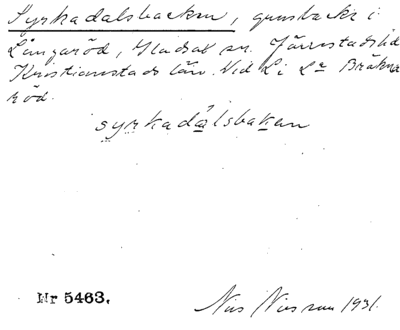 Syrkadalsbacken, grusbacke i
Långaröd, Sladsax sn. Järrestads hd
Kristianstads län. Vid Li Lr Bräkna
röd.
syrkadalsbakan
Nr 5463.
Nils Nilsson 1931.